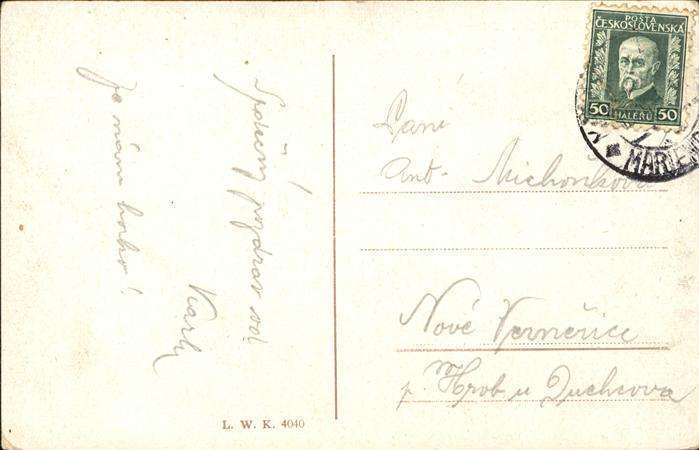 Srdečný pozdrav od
Karly
Je nám horko!
POŠTA
ČESKOSLOVENSKÁ
50 HALÉŘŮ 50
MARIE
Paní
Ant. Michonková
Nové Verneřice
p. Hrob u Duchcova
L. W. K. 4040